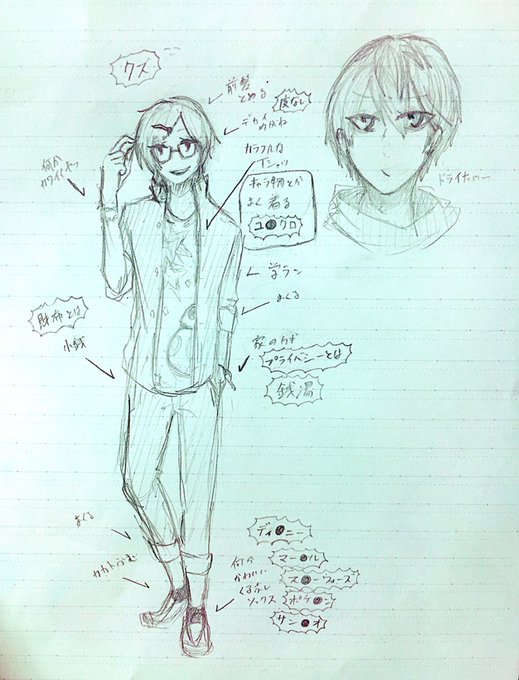 クズ
前髪
とめる
度なし
デカイ
めがね
カラフルな
Tシャツ
何か
カワイイヤツ
キャラ物とか
よく着る
ユ●クロ
ドライヤー
学ラン
まくる
財布とは
小銭
家のカギ
プライベシーとは
銭湯
まくる
カカトふむ
何か
かわいい
くるぶし
ソックス
ディ●ニー
マー●ル
ス●ーウォーズ
ポケ●ン
サン●オ